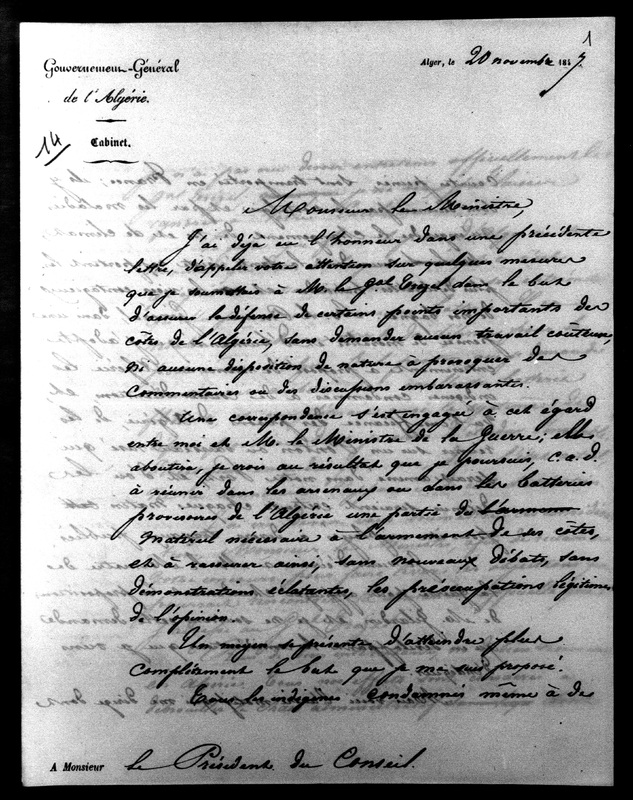 1
Gouvernement-Général
de l'Algérie.
Cabinet.
14
Alger, le 20 novembre 1847
Monsieur le Ministre,
J'ai déja eu l'honneur dans une précédente
lettre, d'appeler votre attention sur quelques mesures
que je soumettais à M. le Gal dans le but
d'assurer la défense de certains points importants des
côtes de l'Algérie, sans demander aucun travail coûteux,
ni aucune disposition de nature à provoquer des
commentaires ou des discussions embarassantes.
Une correspondance s'est engagée à cet égard
entre moi et M. le Ministre de la Guerre; elle
aboutira, je crois au résultat que je poursuis, c.a.d.
à réunir dans les arsenaux ou dans les batteries
provisoires de l'Algérie une partie du
matériel nécessaire à l'armement de ses côtes,
et à rassurer ainsi, sans nouveaux débats, sans
démonstrations éclatantes, les préoccupations légitimes
de l'opinion.
Un moyen se présente d'atteindre plus
complètement le but que je me suis proposé.
Tous les indigènes condamnés même à de
A Monsieur le Président du Conseil.